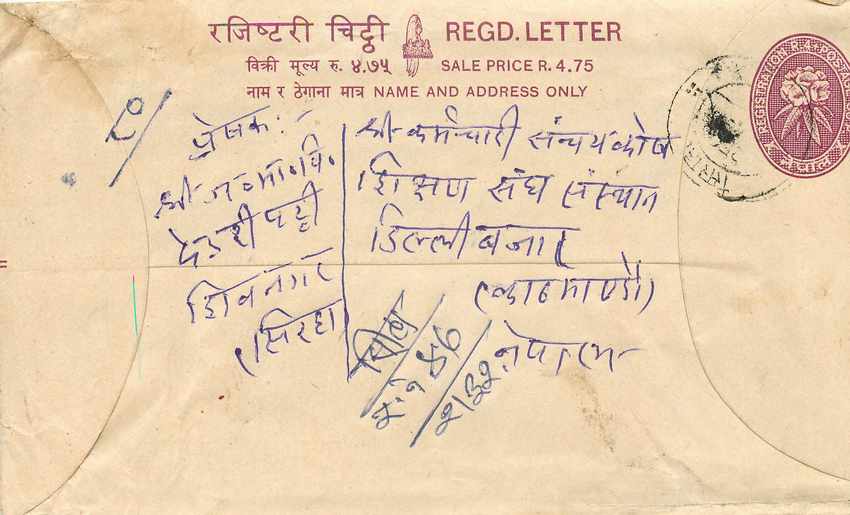 रजिष्टरी चिट्ठी REGD. LETTER
विक्री मूल्य रु. ४.७५ SALE PRICE R. 4.75
नाम र ठेगाना मात्र NAME AND ADDRESS ONLY
REGISTRATION R.4
प्रेषक :
श्री
देउरी पट्टी
शिवनगर
(सिरहा)
श्री कर्मचारी संचय कोष
शिक्षण संघ संस्थान
डिल्ली बजार
(काठमाण्डौ)
नेपाल